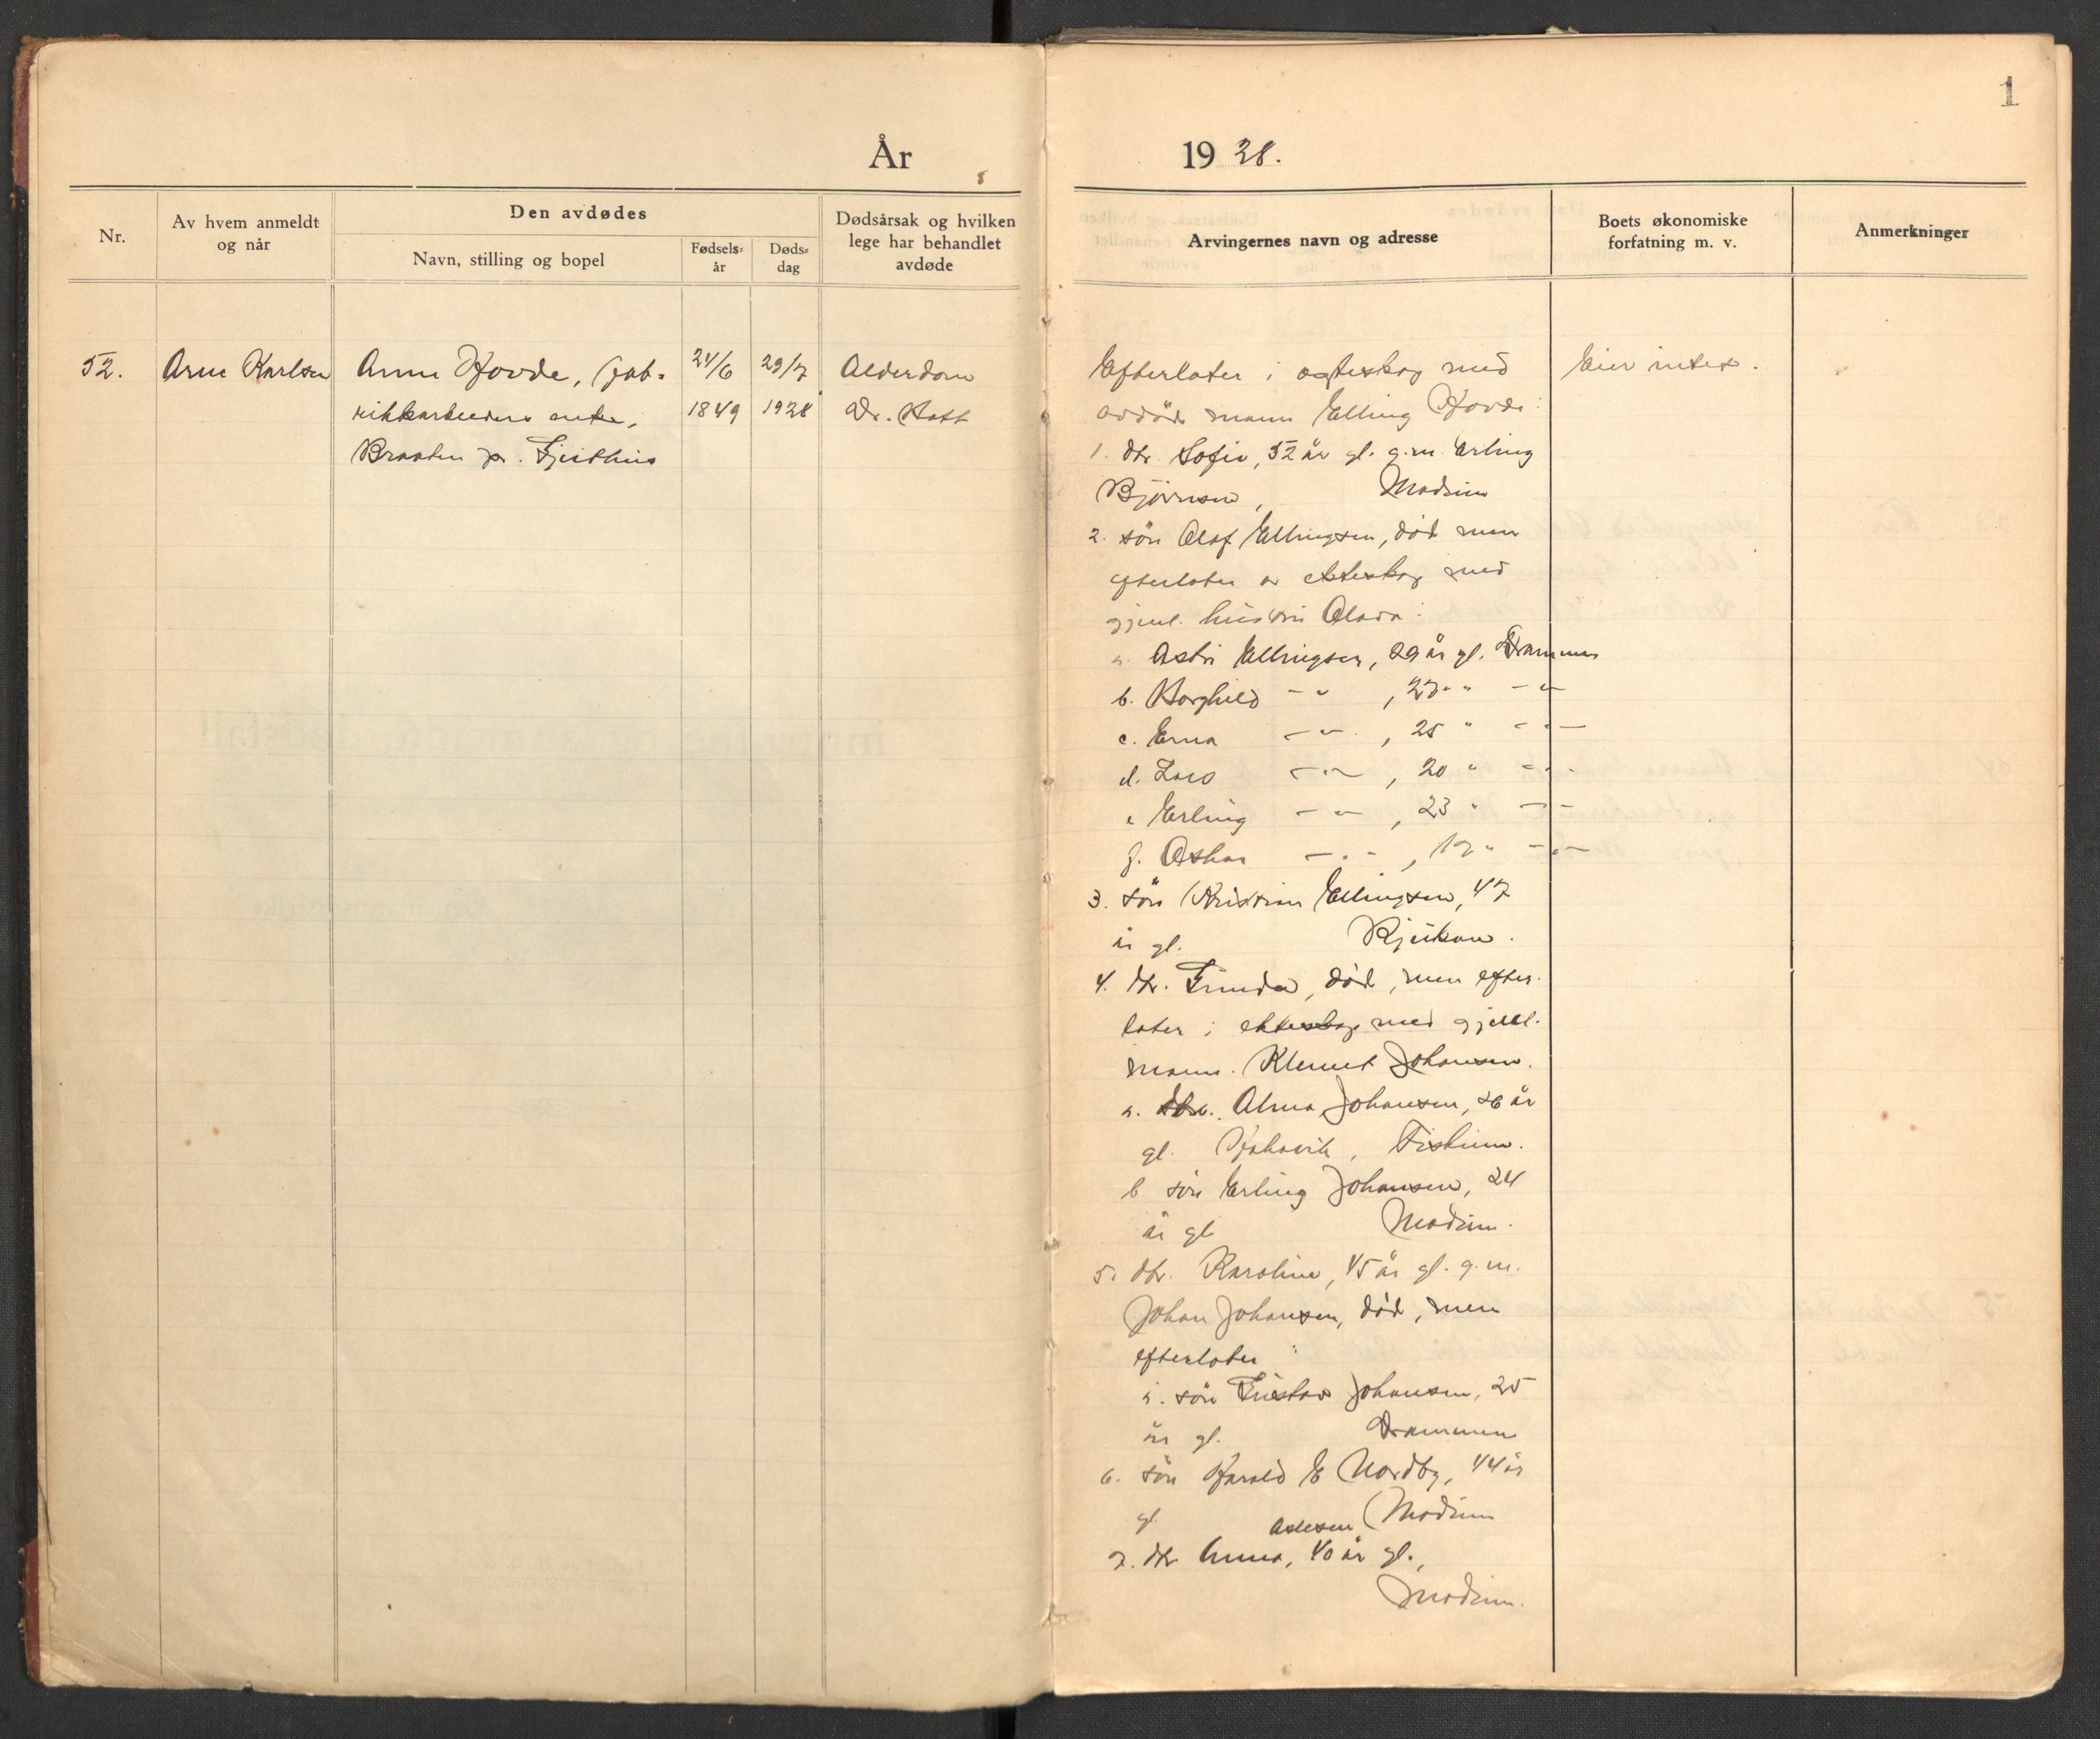 1
År
1928.
Nr.
Av hvem anmeldt
og når
Den avdødes
Navn, stilling og bopel
Fødsels-
år
Døds-
dag
Dødsårsak og hvilken
lege har behandlet
avdøde
Arvingernes navn og adresse
Boets økonomiske
forfatning m. v.
Anmerkninger
52.
Arne Karlsen
Anne Hovde, fab-
rikkarbeiders enke,
Braaten p. Geithus
24/6
1849
29/7
1928
Alderdom
Dr. Hatt
Efterlater i egteskap med
avdøde mann Elling Hovde:
1. dtr. Sofie, 52 år gl. g.m. Erling
Bjørnsen, Modum
2. søn Olaf Ellingsen, död men
efterlater av ekteskap med
gjenl. hustru Olava:
a. Astri Ellingsen, 29 år gl. Drammen
b. Borghild -"- , 27 " -"-
c. Erna -"- , 25 " -"-
d. -"- , 20 " -"-
e. Erling -"- , 23 " -"-
f. Oskar -"- , 17 " -"-
3. søn Kristian Ellingsen, 47
år gl. Rjukan.
4. dtr. Gunda, död, men efter-
later i ekteskap med gjenl.
mann. Klemet Johansen.
a. dtr. Alma Johansen, 26 år
gl. Fiskum.
b søn Erling Johansen, 24
år gl. Modum.
5. dtr. Karoline, 45 år gl. g.m.
Johan Johansen, död, men
efterlater:
a. søn Gustav Johansen, 25
år gl. Drammen
6. søn Harald E Nordby, 44 år
gl. Modum
7. dtr Anna, 40 år gl.,
Modum.
Eier intet.